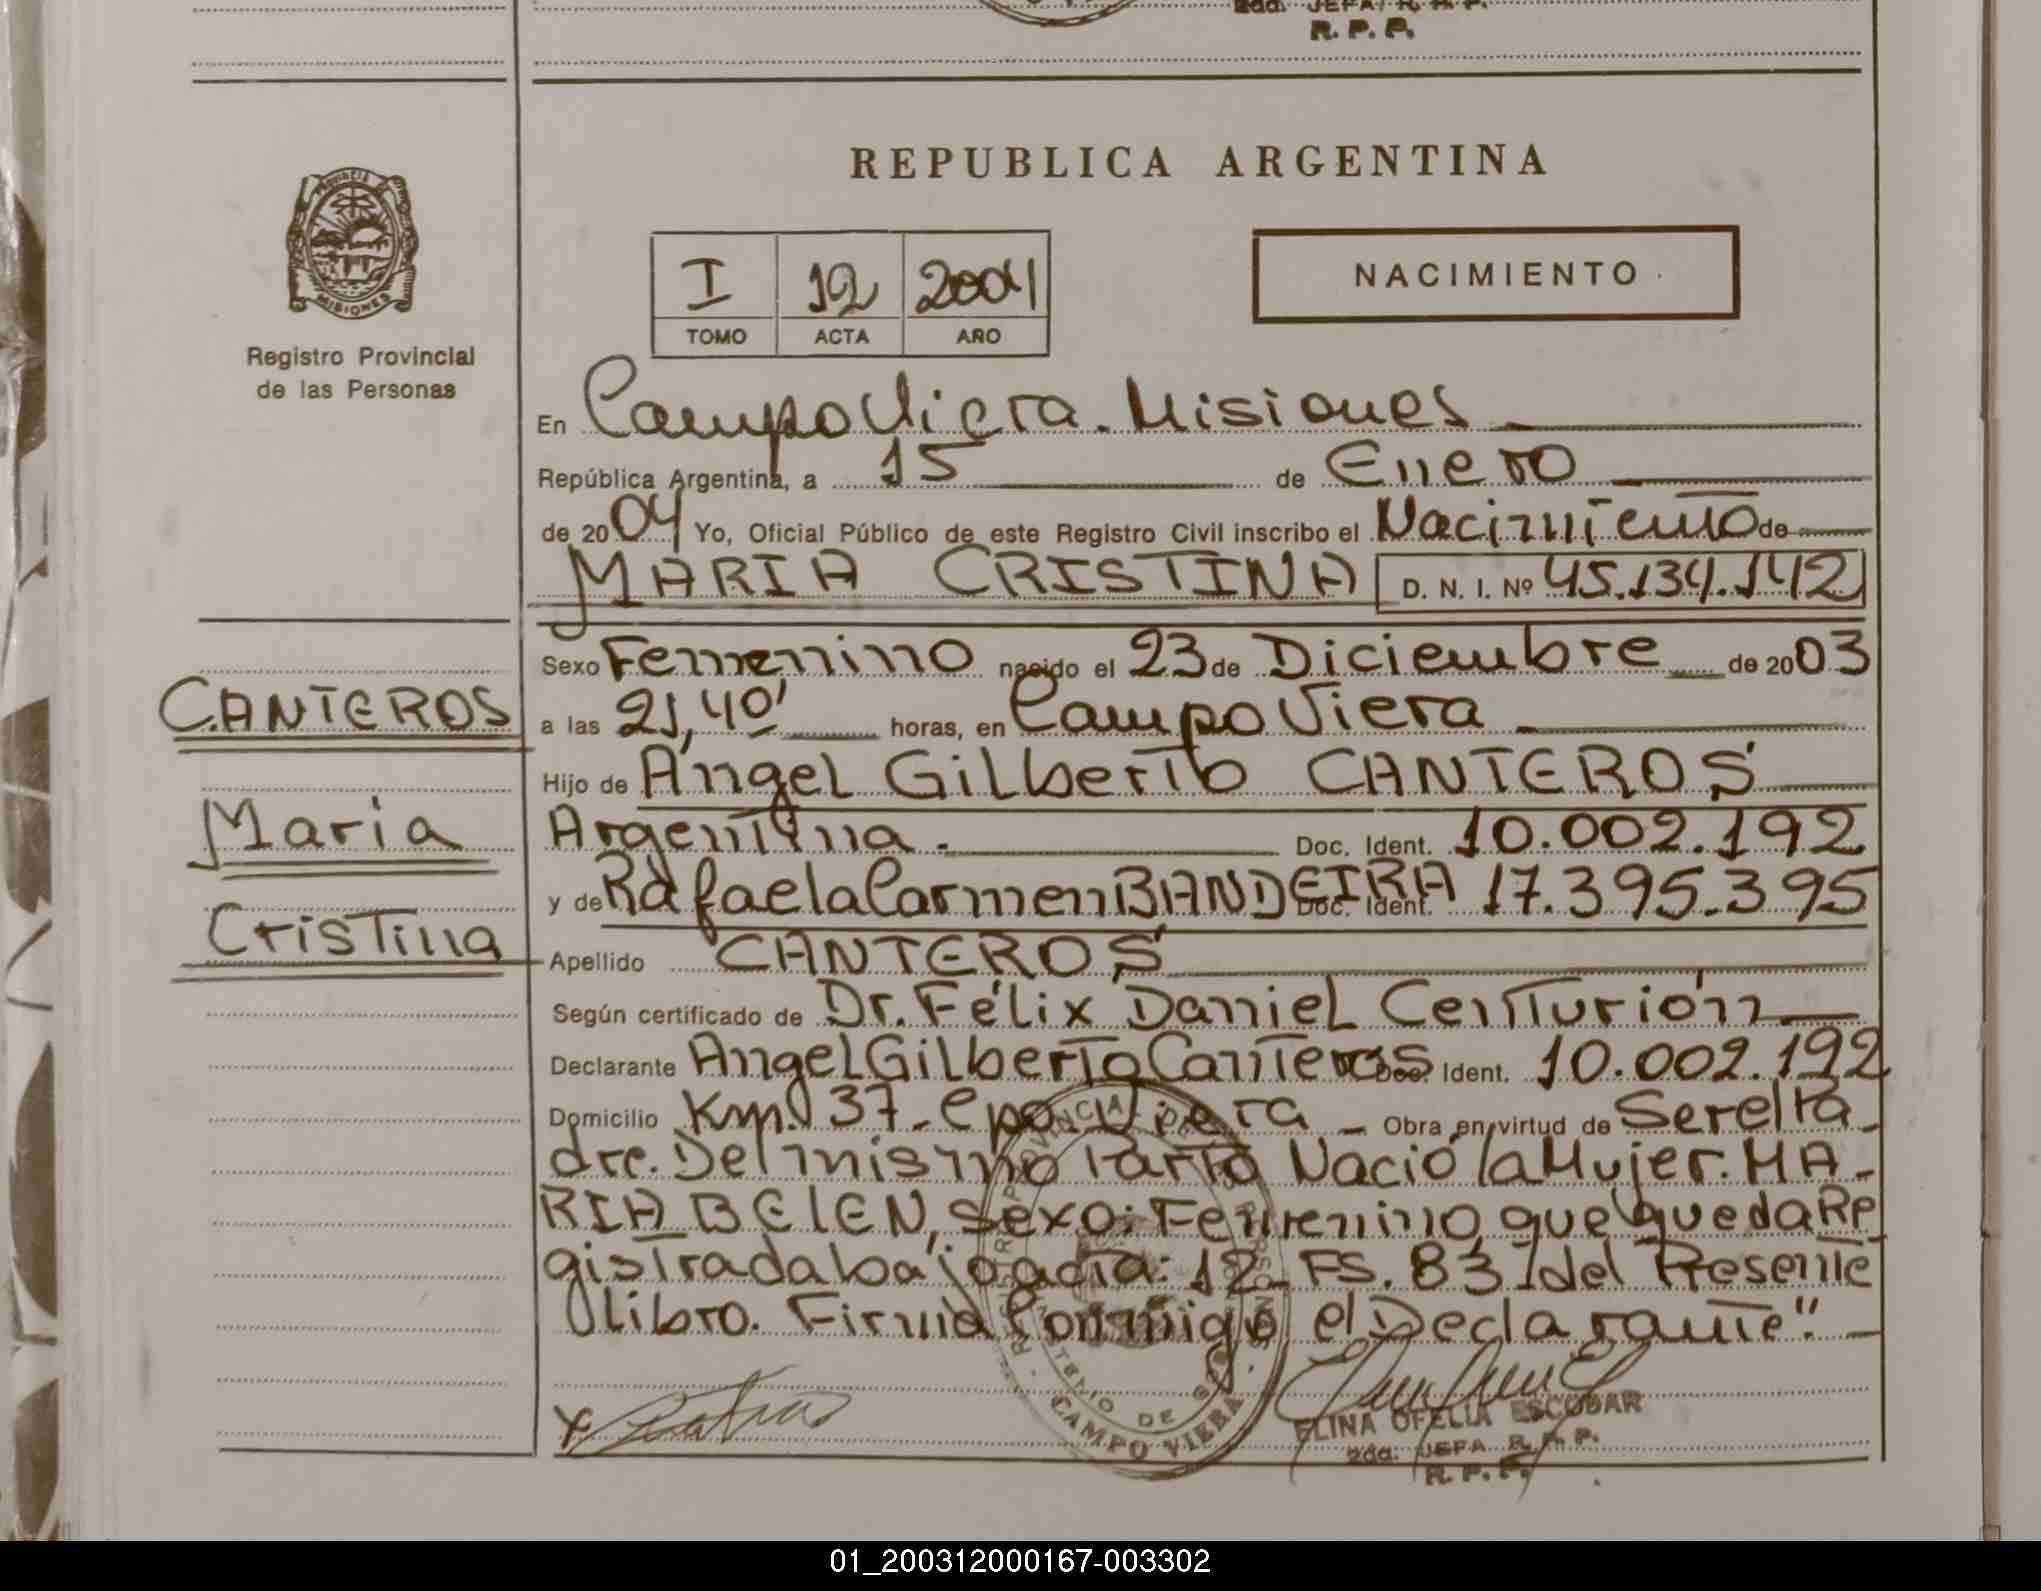 2da. JEFA R. P. P.
R. P. P.
REPUBLICA ARGENTINA
PROVINCIA DE
MISIONES
Registro Provincial
de las Personas
I 12 2004
TOMO ACTA AÑO
NACIMIENTO
En Campo Viera. Misiones
República Argentina, a 15 de Enero
de 2004 Yo, Oficial Público de este Registro Civil inscribo el Nacimiento de
MARIA CRISTINA D. N. I. Nº 45.134.142
Sexo Femenino nacido el 23 de Diciembre de 2003
CANTEROS
a las 21,40' horas, en Campo Viera
Hijo de Angel Gilberto CANTEROS
Maria
Argentina. Doc. Ident. 10.002.192
y de Rafaela Carmen BANDEIRA Doc. Ident. 17.395.395
Cristina
Apellido CANTEROS
Según certificado de Dr. Félix Daniel Centurión
Declarante Angel Gilberto Canteros Doc. Ident. 10.002.192
Domicilio Km. 37 - Cpo. Viera - Obra en virtud de Ser el Pa-
dre. Del mismo Parto Nació la Mujer. MA-
RIA BELEN, Sexo: Femenino, que queda Re
gistrada bajo acta: 12 - FS. 83 del Presente
libro. Firma Conmigo el Declarante".
CAMPO VIERA
ELINA OFELIA ESCOBAR
2da. JEFA R. P. P.
R. P. P.
01_200312000167-003302